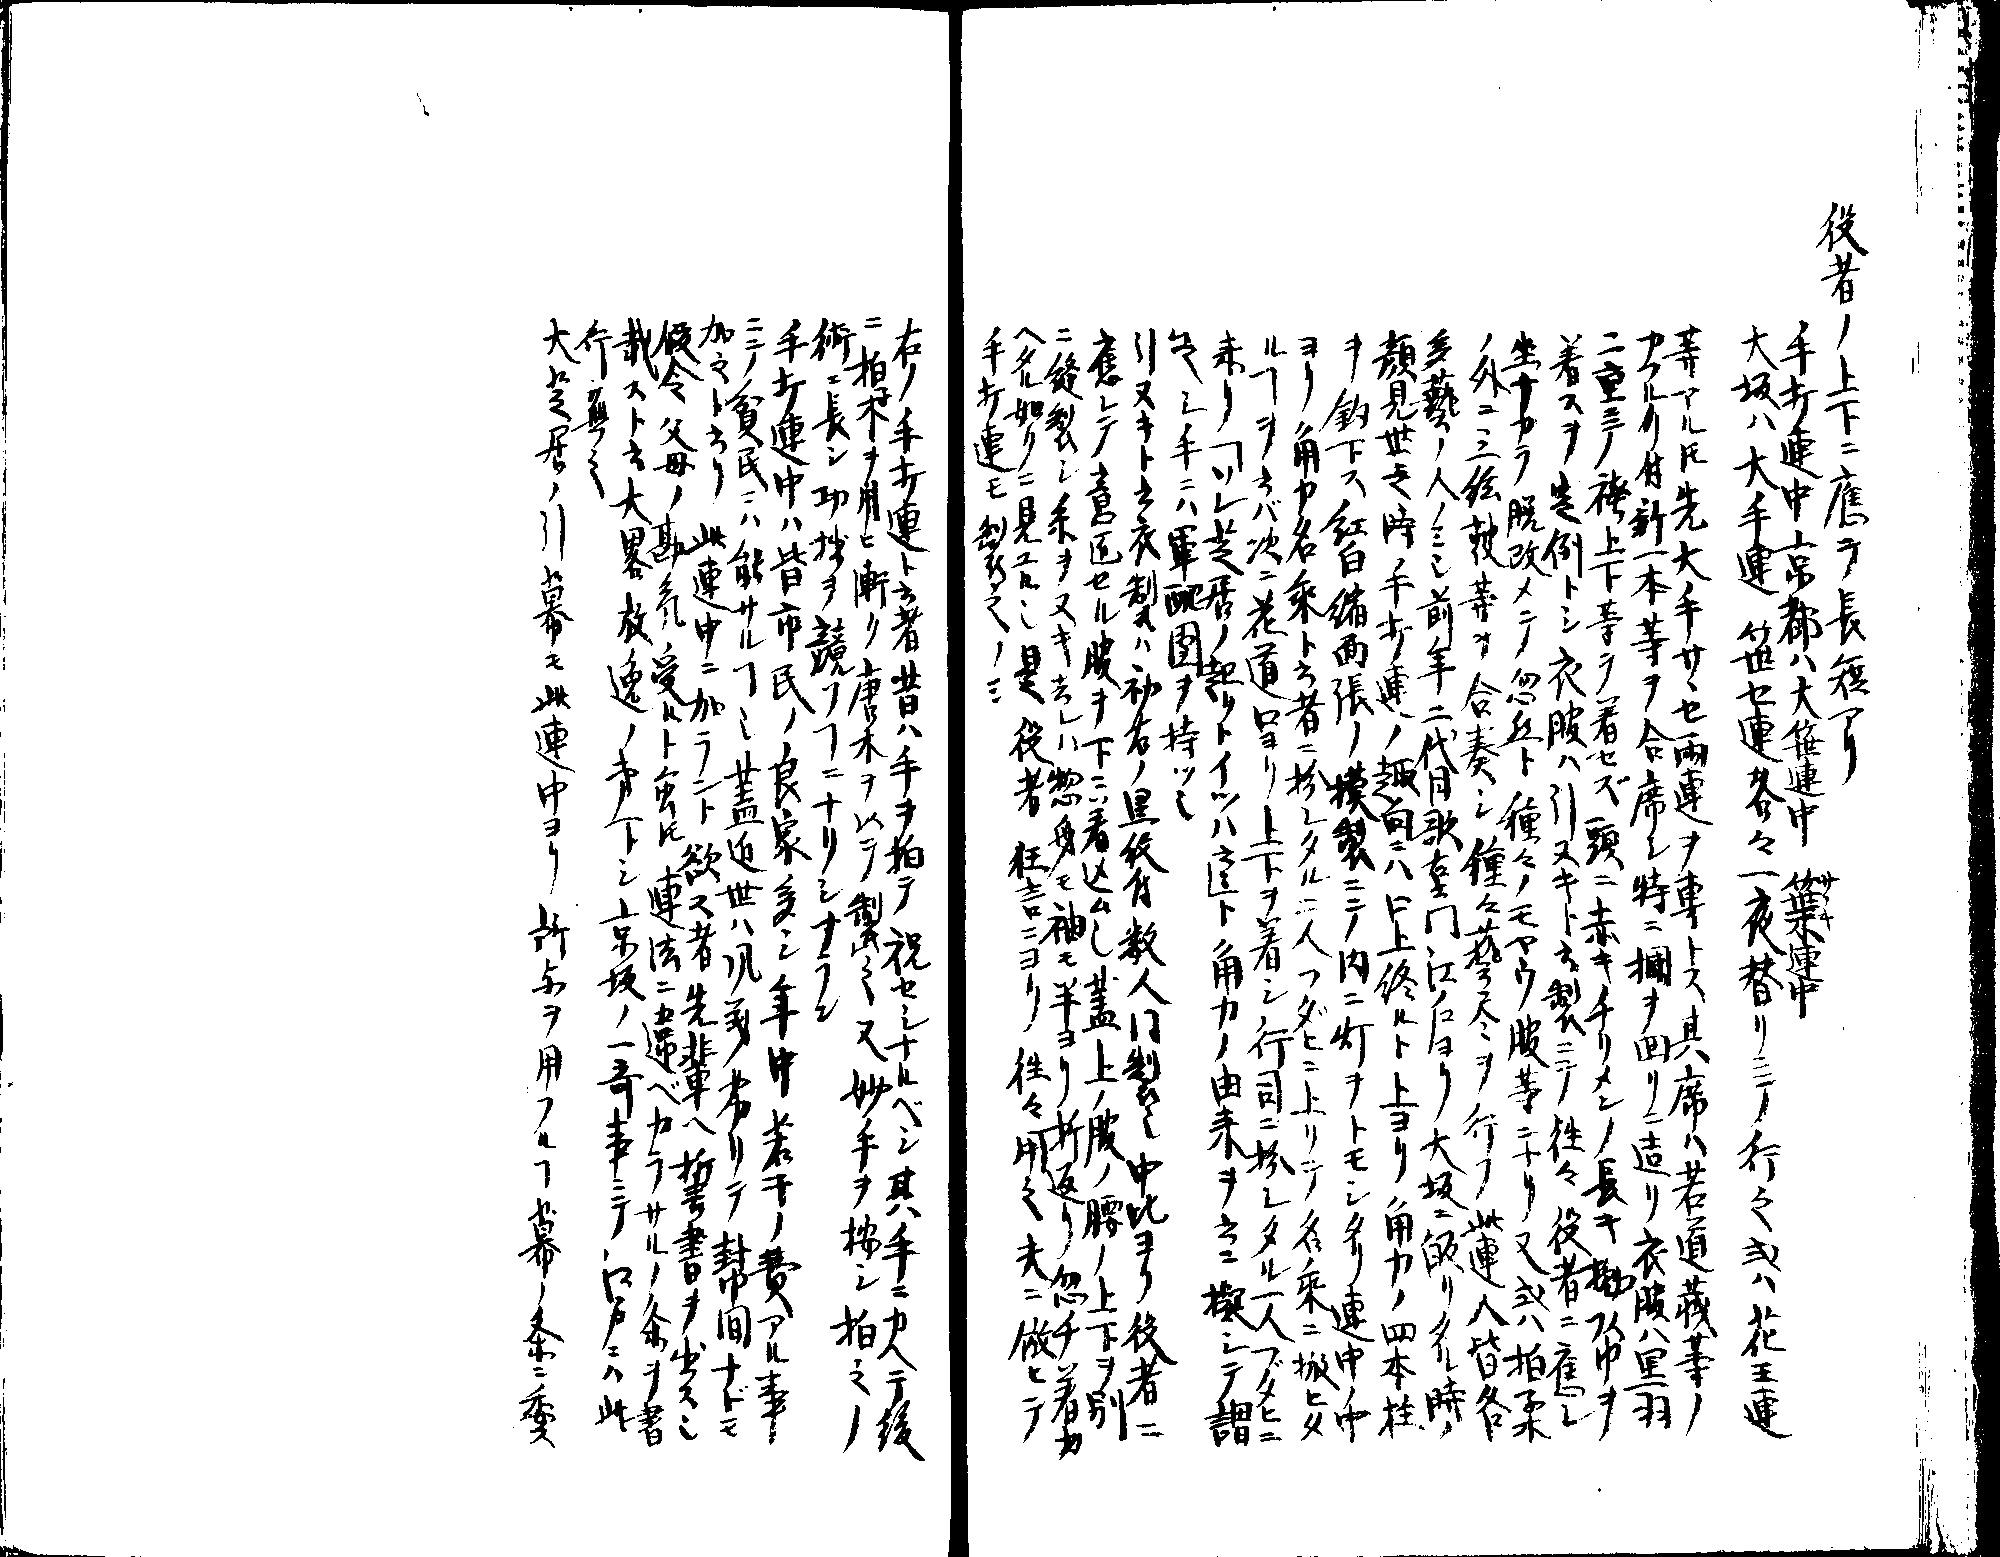 役者ノ上下ニ應テ長短アリ
手打連中京都ハ大笹連中 篠連中
大坂ハ大手連 笹セ連各々一夜替リニテ行之或ハ花王連
等アル𪜈先大手サヽセ両連ヲ専トス其席ハ若道藏等ノ
ヤクルリ付新一本等ヲ合席シ特ニ欄ヲ回リニ造リ衣服ハ黒羽
二重ニテ袴上下等ヲ着セズ頭ニ赤キチリメンノ長キ抛頭巾ヲ
着スヲ定例トシ衣服ハ引ヌキト云製ニテ往々役者ニ應シ
坐ナカラ脱改メテ忽焉ト種々ノモヤウ服等ニナリ又或ハ拍柔
ノ外ニ三絃鼓等ヲ合奏シ種々藝尽ヲ行フ此連人皆各
多藝ノ人ノミミ前年二代目歌右エ門江戸ヨリ大坂ニ皈リタル時ノ
顔見世之時手打連ノ趣向ニハ口上終ルト上ヨリ角力ノ四本柱
ヲ釣下ス紅白縮両張ノ模製ニテ内ニ灯ヲトモシタリ連中ノ中
ヨリ角力名乗ト云者ニ扮シタル二人フダヒニ上リテ名乗ニ扱ヒタ
ルヿヲ云バ次ニ花道口ヨリ上下ヲ着シ行司ニ扮シタル一人ブタヒニ
来リヿソレ芝居ノ起リトイツハ云ト角力ノ由来ヲ云ニ擬シテ謂
之シ手ニハ軍配團ヲ持ツ也
引ヌキト云衣製ハ初右ノ黒紋付数人同製シ中比ヨリ役者ニ
應シテ意匠セル服ヲ下ニ着込ムシ蓋上ノ服ノ腰ノ上下ヲ別
ニ縫製シ糸ヲヌキ去レハ惣身モ袖モ半ヨリ折返リ忽チ着カ
ヘタル如クニ見エル也是役者狂言ニヨリ往々用之夫ニ倣ヒテ
手打連モ製之ノミ
右ノ手打連ト云者昔ハ手ヲ拍テ祝セシナルベシ其ハ手ニカヘテ後
ニ拍子木ヲ用ヒ漸ク唐木ヲ以テ製之又妙手ヲ按シ拍之ノ
術ニ長シ功拙ヲ競フヿニナリシナラン
手打連中ハ皆市民ノ良家多シ年中若干ノ費アル事
ニテノ貧民ニハ能サルヿ也蓋近世ハ風義弟リテ幇間ナドモ
加之ト云リ 此連中ニ加ラント欲ス者先輩ヘ誓書ヲ出ス也
假令父母ノ勘気ハ受ルト雖𪜈連法ニ違ベカラサルノ条ヲ書
載スト云大畧放逸ノ所トシ京坂ノ一奇事ニテ江戸ニハ此
行無之
大芝居ノ引幕モ此連中ヨリ所与ヲ用フルヿ幕ノ条ニ委